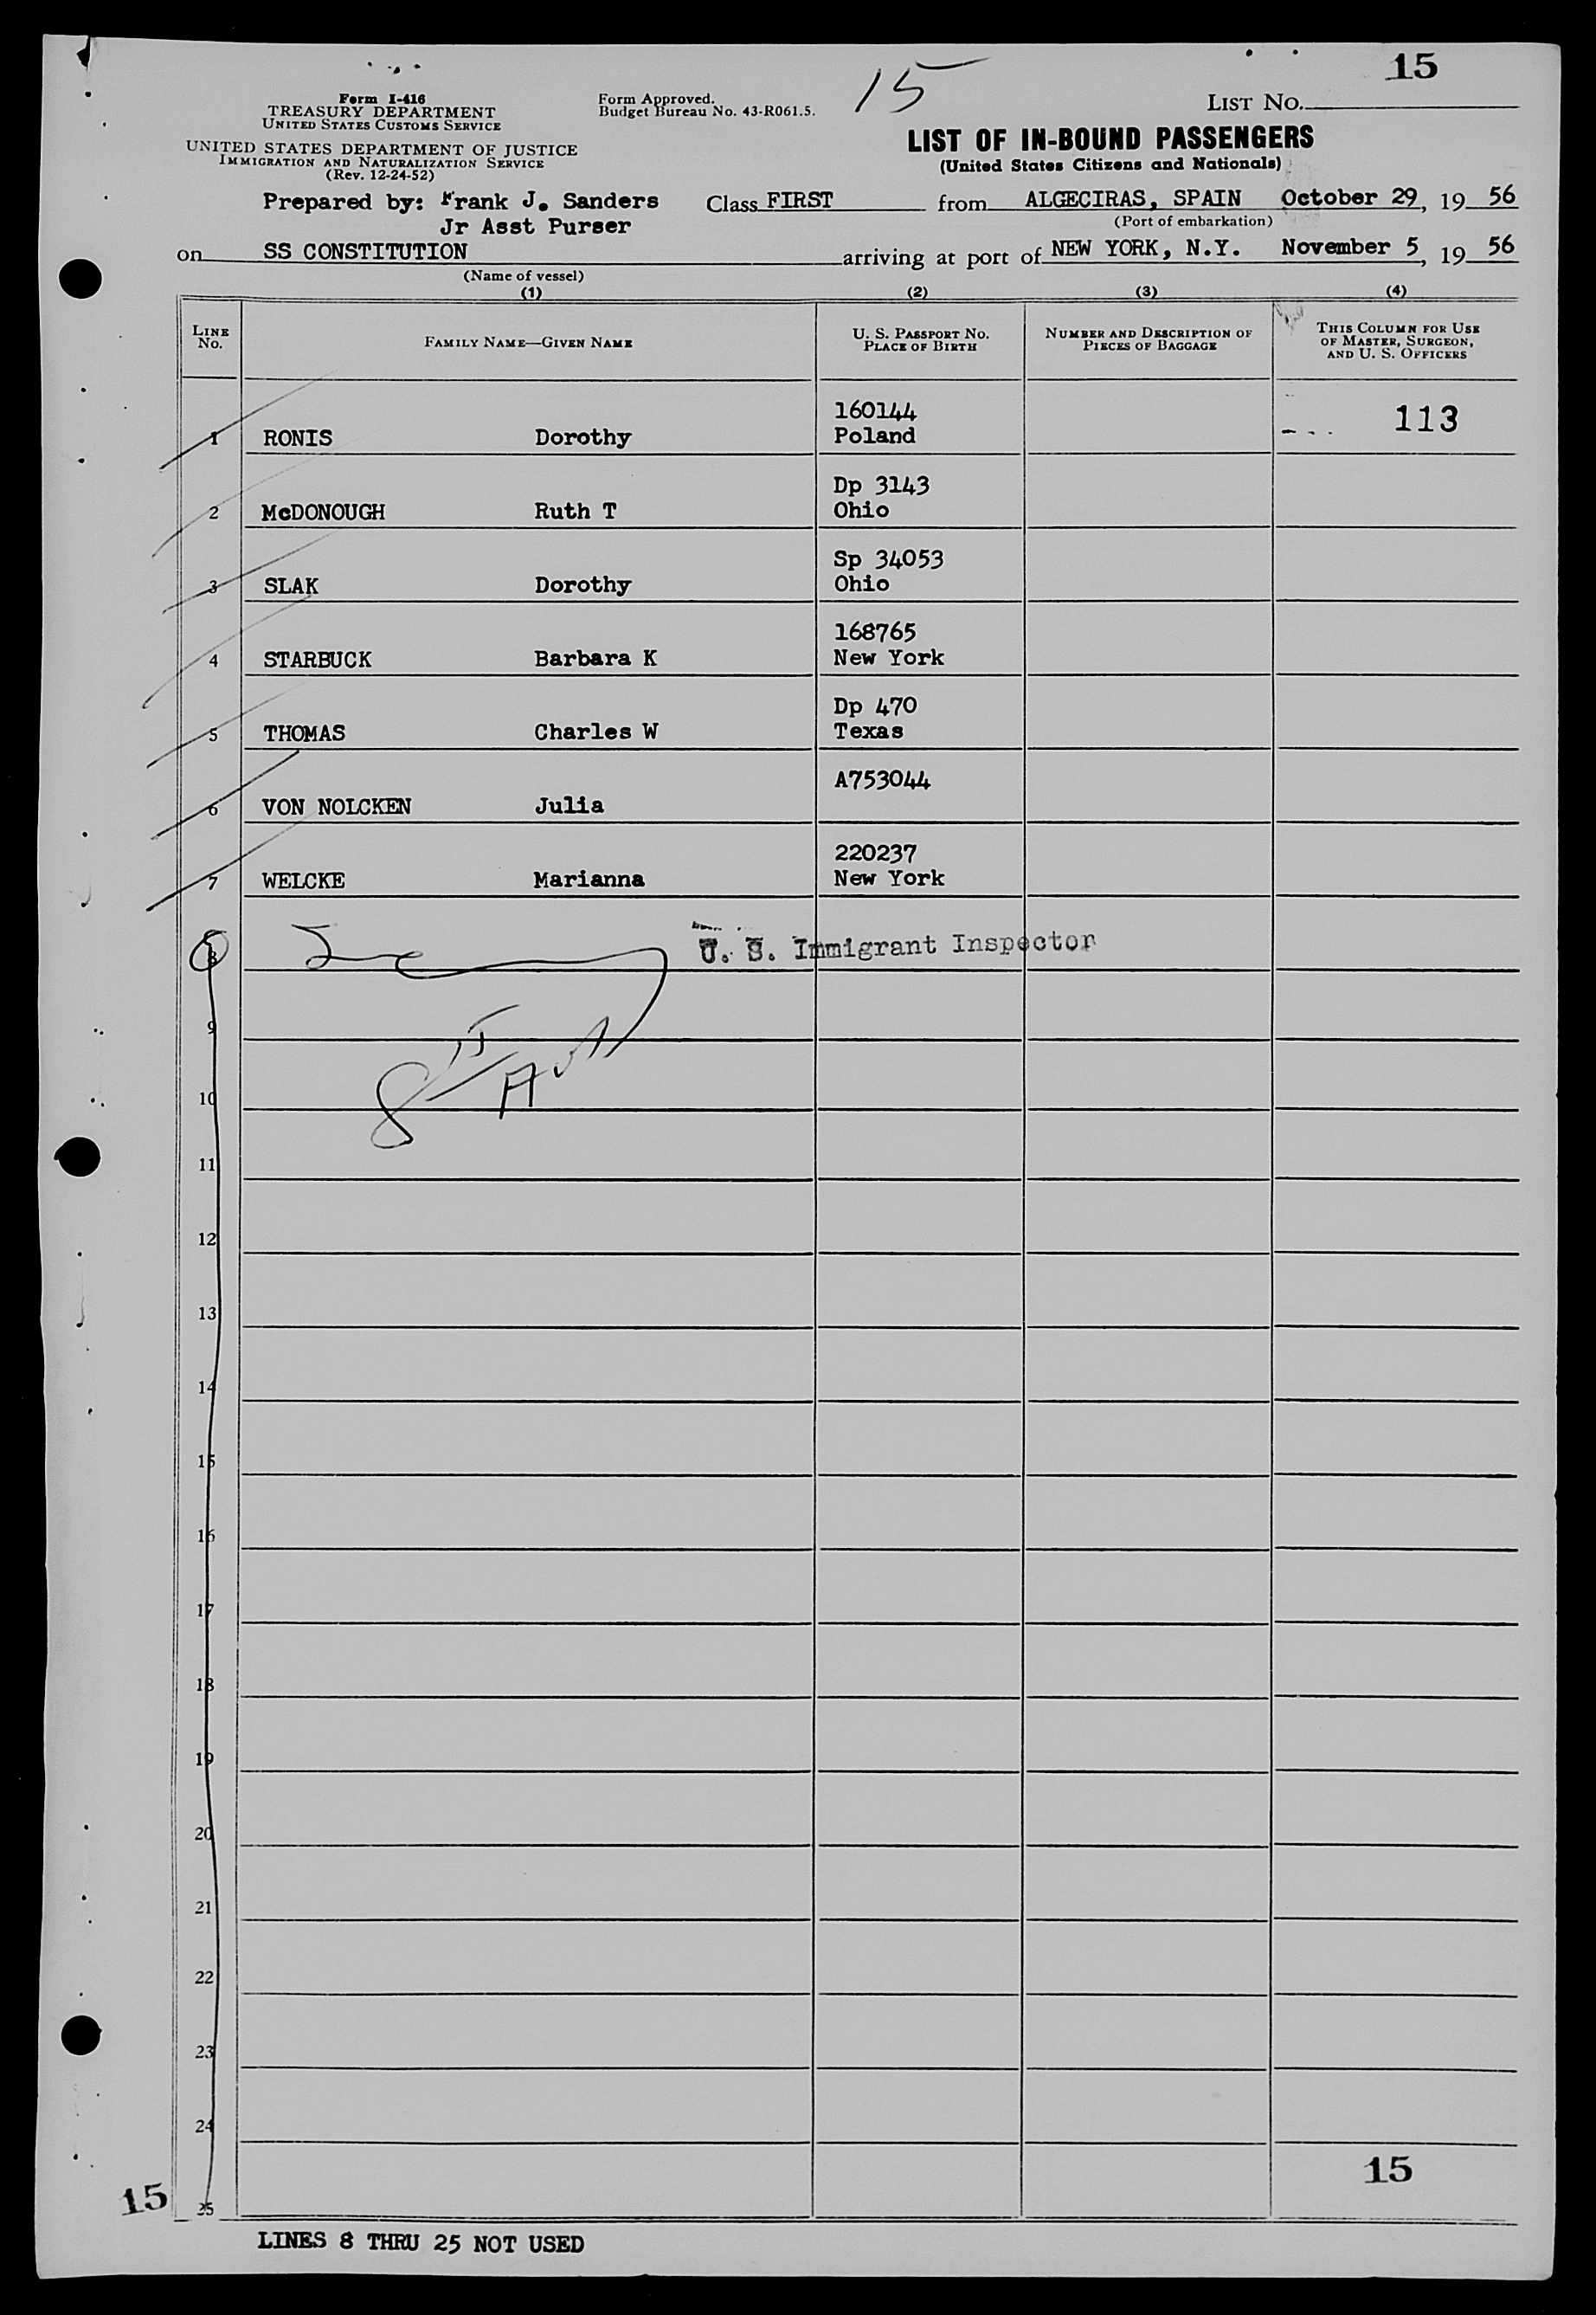 15
15
Form I-416
TREASURY DEPARTMENT
UNITED STATES CUSTOMS SERVICE
UNITED STATES DEPARTMENT OF JUSTICE
IMMIGRATION AND NATURALIZATION SERVICE
(Rev. 12-24-52)
Form Approved.
Budget Bureau No. 43-R061.5.
LIST NO.
LIST OF IN-BOUND PASSENGERS
(United States Citizens and Nationals)
Prepared by: Frank J. Sanders Class FIRST from ALGECIRAS, SPAIN October 29, 19 56
Jr Asst Purser (Port of embarkation)
on SS CONSTITUTION arriving at port of NEW YORK, N.Y. November 5, 19 56
(Name of vessel)
(1) (2) (3) (4)
LINE NO. FAMILY NAME—GIVEN NAME U. S. PASSPORT NO. PLACE OF BIRTH NUMBER AND DESCRIPTION OF PIECES OF BAGGAGE THIS COLUMN FOR USE OF MASTER, SURGEON, AND U. S. OFFICERS
160144 113
1 RONIS Dorothy Poland
Dp 3143
2 McDONOUGH Ruth T Ohio
Sp 34053
3 SLAK Dorothy Ohio
168765
4 STARBUCK Barbara K New York
Dp 470
5 THOMAS Charles W Texas
A753044
6 VON NOLCKEN Julia
220237
7 WELCKE Marianna New York
8 U. S. Immigrant Inspector
9
10
11
12
13
14
15
16
17
18
19
20
21
22
23
24
15
15 25
LINES 8 THRU 25 NOT USED